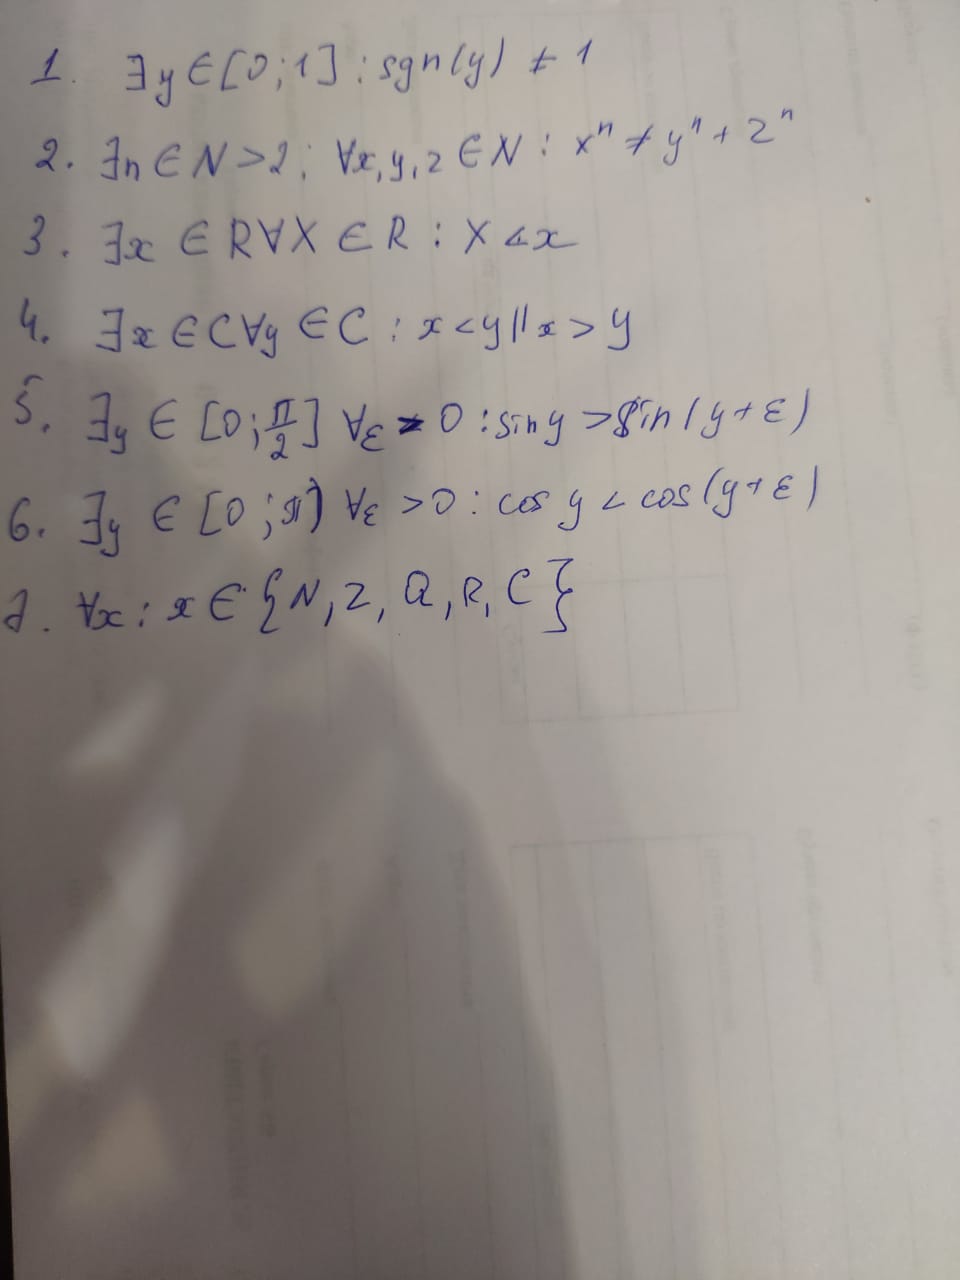 1. ∃y ∈ [0;1] : sgn(y) ≠ 1
2. ∃n ∈ N > 2; ∀x,y,z ∈ N : xⁿ ≠ yⁿ + zⁿ
3. ∃x ∈ R ∀X ∈ R : X < x
4. ∃x ∈ C ∀y ∈ C : x < y || x > y
5. ∃y ∈ [0; π/2] ∀ε > 0 : sin y > sin(y+ε)
6. ∃y ∈ [0; π) ∀ε > 0 : cos y < cos(y+ε)
7. ∀x : x ∈ {N, Z, Q, R, C}